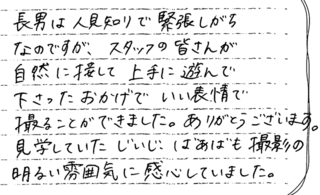 長男は人見知りで緊張しがち
なのですが、スタッフの皆さんが
自然に接して上手に遊んで
下さったおかげでいい表情で
撮ることができました。ありがとうございます。
見学していたじいじ、ばあばも撮影の
明るい雰囲気に感心していました。